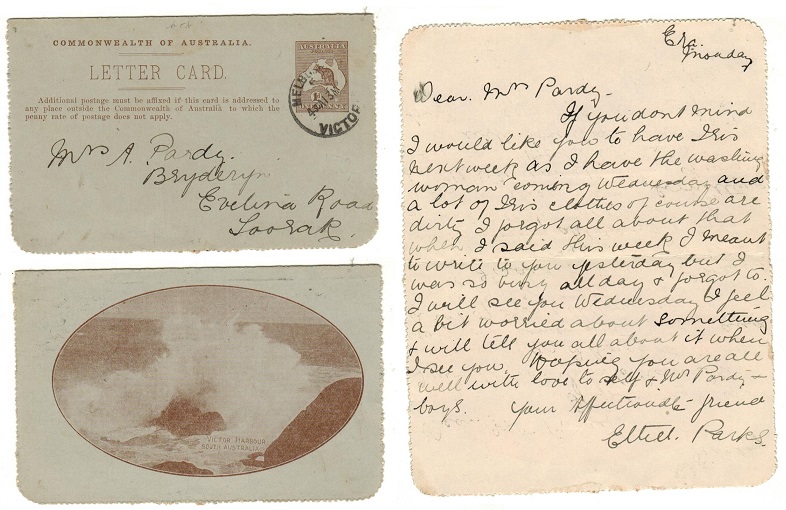 COMMONWEALTH OF AUSTRALIA.
LETTER CARD.
Additional postage must be affixed if this card is addressed to
any place outside the Commonwealth of Australia to which the
penny rate of postage does not apply.
AUSTRALIA
VICTOR
Mrs A. Pardy.
Bryderyn
Evelina Road
Toorak.
VICTOR HARBOUR
SOUTH AUSTRALIA
Monday
Dear Mrs Pardy-
If you dont mind
I would like you to have Iris
next week as I have the washing
woman coming Wednesday and
a lot of Iris clothes of course are
dirty I forgot all about that
when I said this week I meant
to write to you yesterday but I
was so busy all day & forgot to.
I will see you Wednesday I feel
a bit worried about something
& will tell you all about it when
I see you. Hoping you are all
well with love to self & Mr Pardy -
boys. Your affectionate friend
Ethel. Parks.